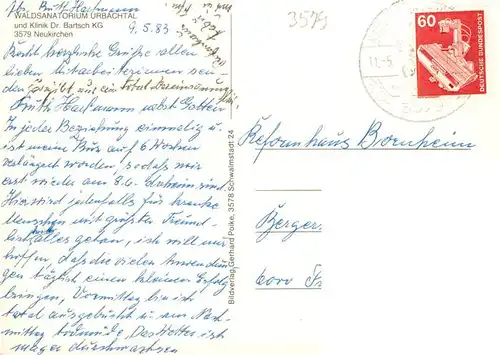 Ihr Britt Hartmann
WALDSANATORIUM URBACHTAL
und Klinik Dr. Bartsch KG
3579 Neukirchen
9.5.83
3579
60
DEUTSCHE BUNDESPOST
11.-5.
Recht herzliche Grüße allen
lieben Mitarbeiterinnen
Hartmann nebst Gatten
In jeder Beziehung einmalig u.
ist meine Kur auf 6 Wochen
verlängert worden, sodaß wir
erst wieder am 8.6. daheim sind.
Hier wird jedenfalls für kranke
Menschen mit größter Freund-
lichkeit alles getan, ich will nur
hoffen, daß die vielen Anwendun
gen täglich einen kleinen Erfolg
bringen, Vormittag bin ich
total ausgebucht u. am Nach-
mittag todmüde. Das Wetter ist
mager durchwachsen
Bildverlag Gerhard Poike, 3578 Schwalmstadt 24
Reformhaus Bornheim
Berger